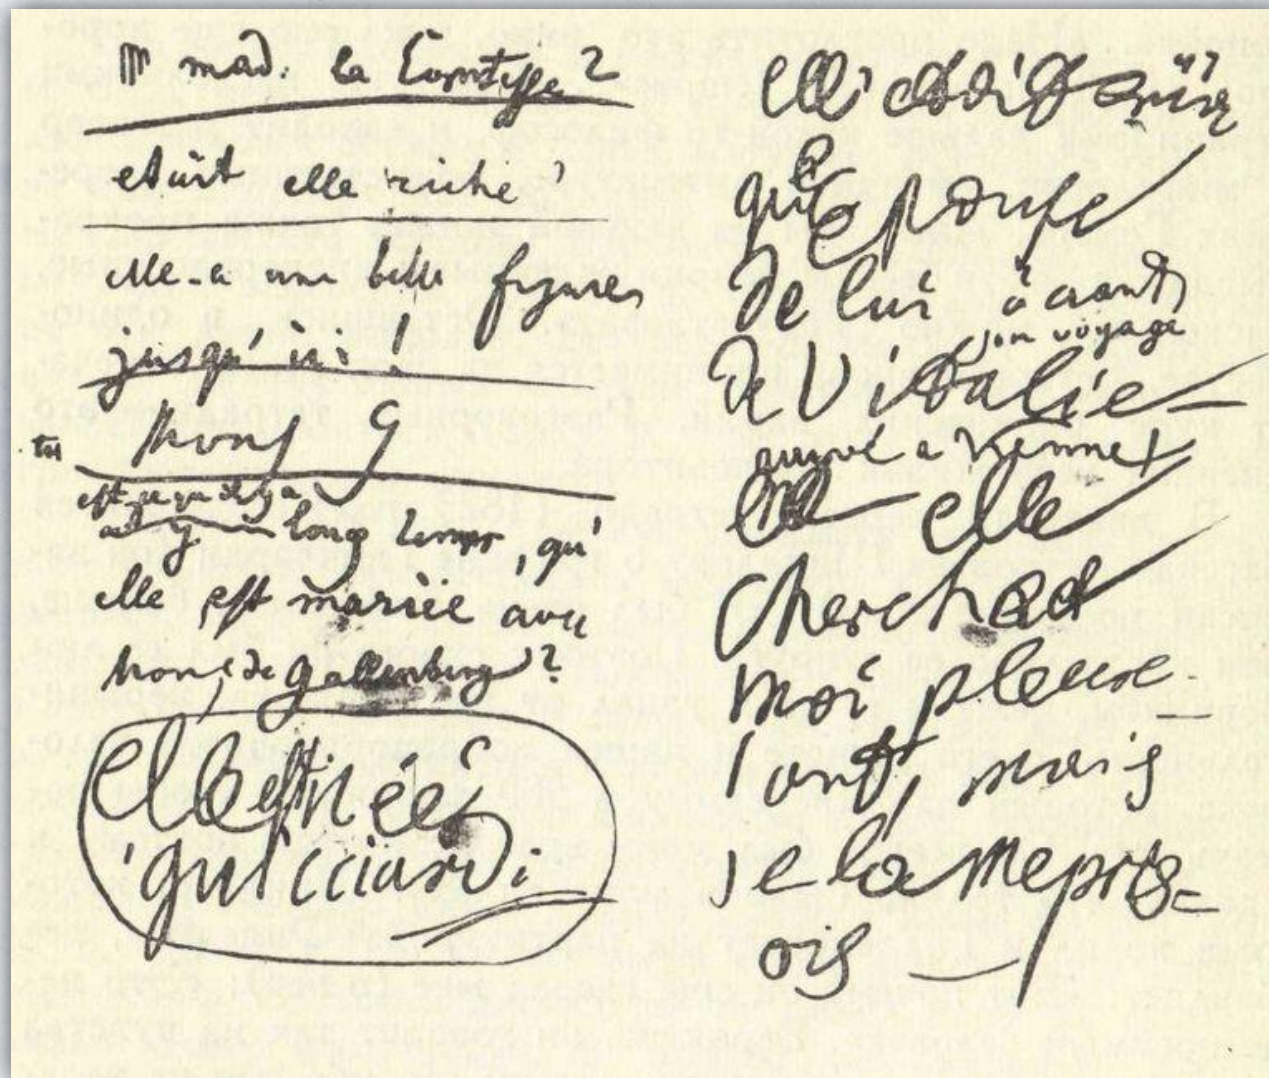 mad. la Comtesse?
etait elle riche?
elle a une belle figure
jusqu'ici!
Mons G
est ce qu'il y a
long temps, qu'
elle est mariée avec
Mons. de Gallenberg?
elle est née
guicciardi
elle etoit
que epouse
de lui avant
son voyage
de l'italie
arrivé a Vienne
elle
cherchoit
moi pleure-
rant, mais
je la mepris-
ois